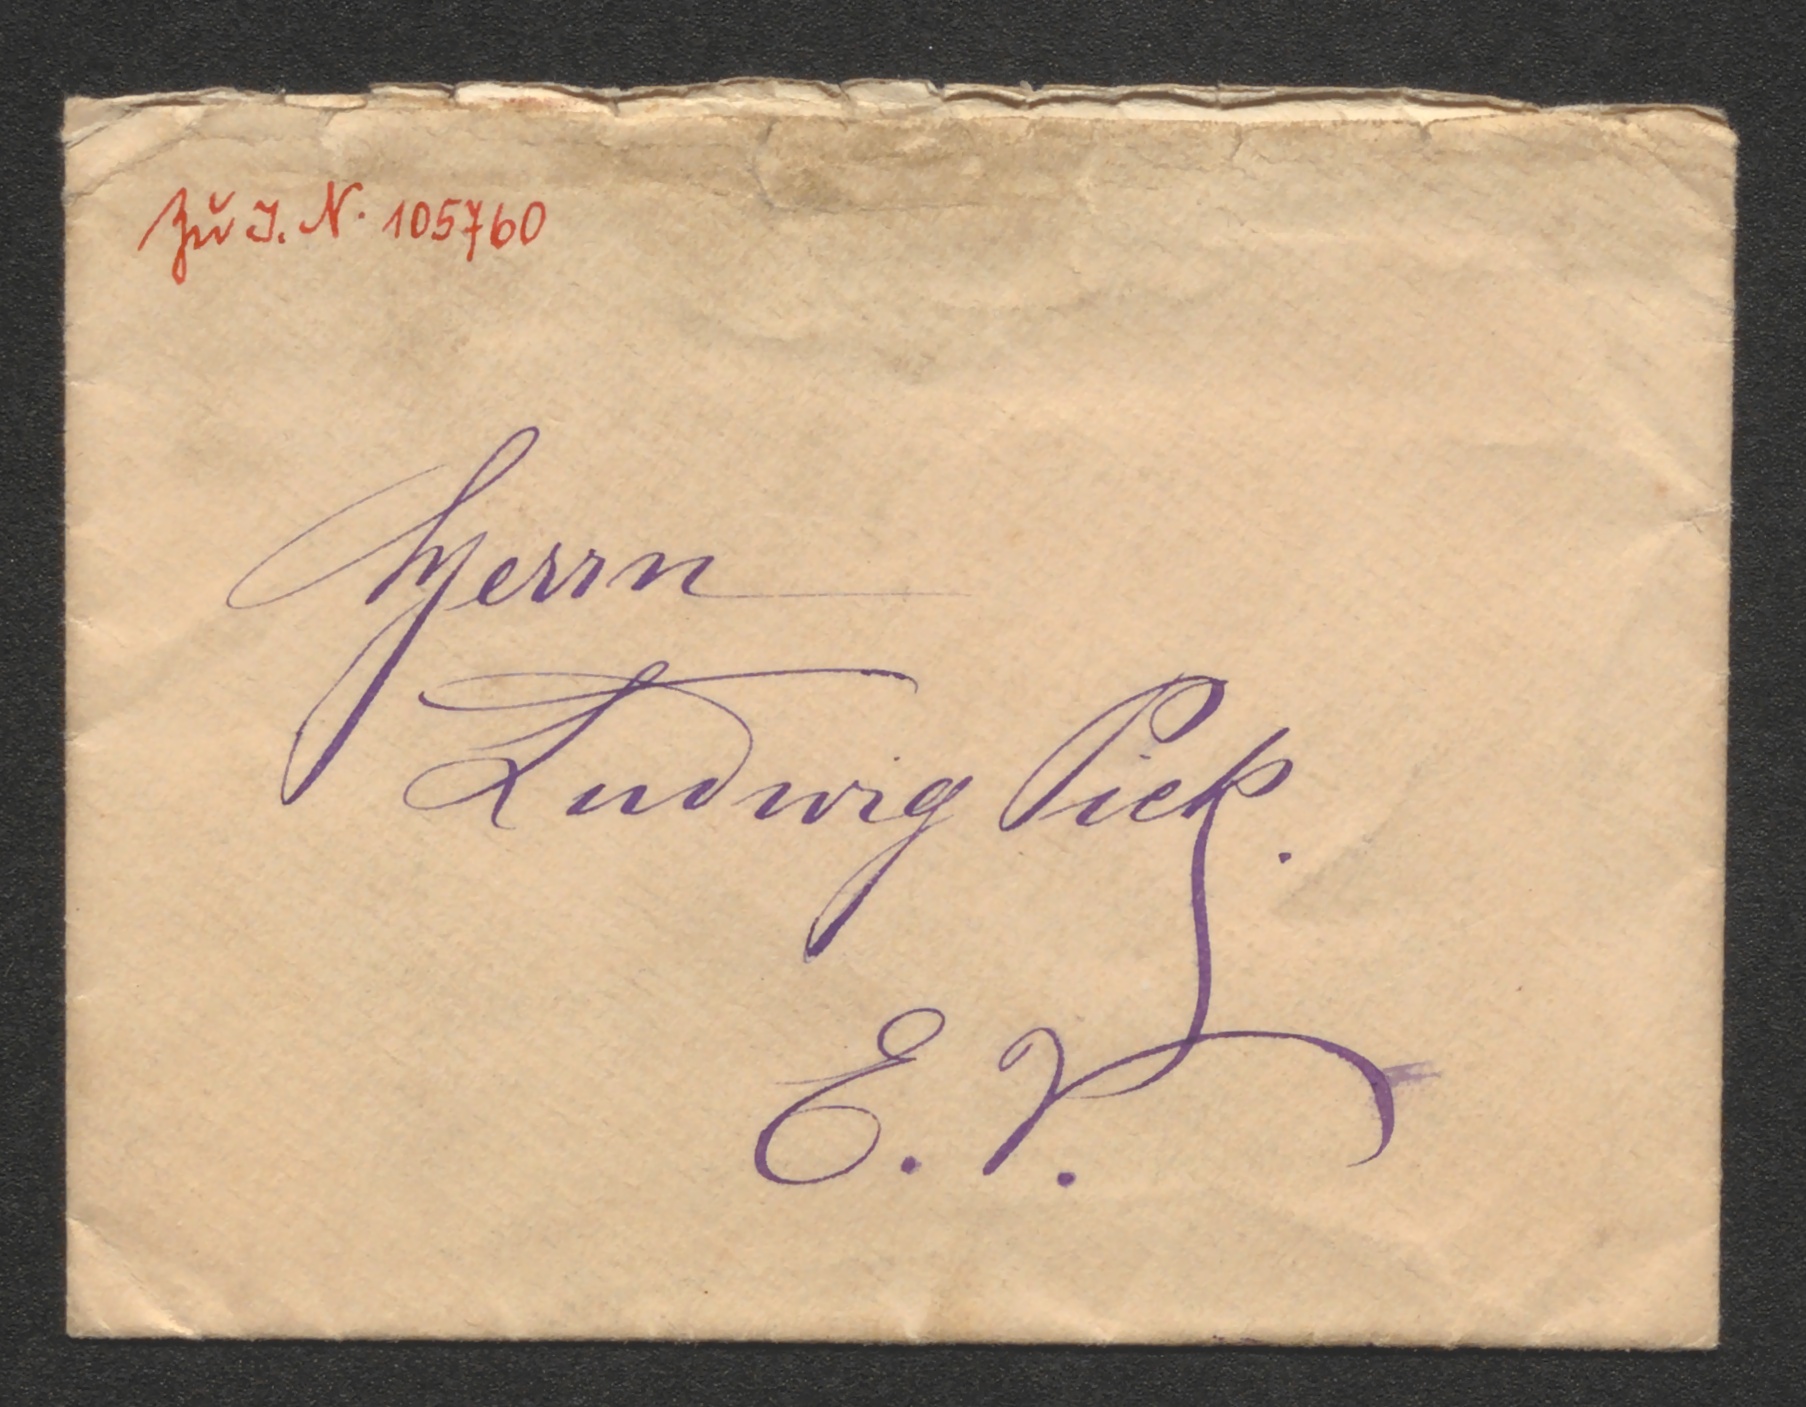 Zu I. N. 105760
Herrn
Ludwig Pick.
E. V.